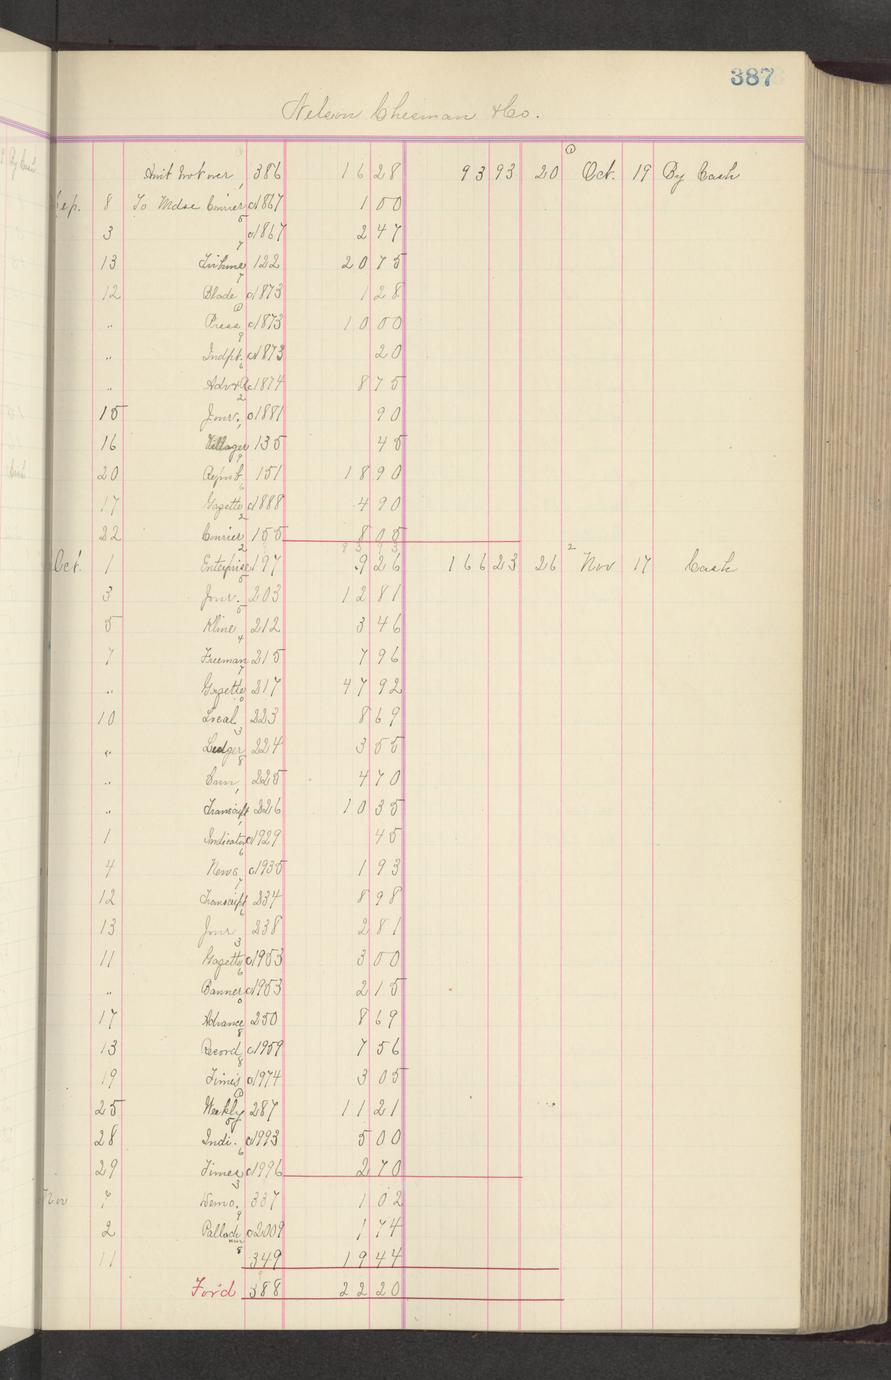 387
Nelson Chesman & Co.
Amt brot over, 386 16 28 93 93 20 ① Oct. 19 By Cash
Sep. 8 To Mdse Courier c1867 1 00
3 c1867 2 47
13 Tribune 122 20 75
12 Blade c1873 1 28
" Press c1873 10 00
" Indpt. c1873 20
" Adv & R c1874 8 75
15 Jour. c1881 90
16 Villager 135 45
20 Repub 151 18 90
17 Gazette c1888 4 90
22 Courier 155 8 05
83 93
Oct. 1 Enterprise 197 9 26 166 23 26 2 Nov 17 Cash
3 Jour. 203 12 81
5 Kline 212 3 46
7 Freeman 215 7 96
" Gazette 217 47 92
10 Local 223 8 69
" Ledger 224 3 55
" 225 4 70
" Transcript 226 10 35
1 Indicator c1929 45
4 News c1935 1 93
12 Transcript 234 8 98
13 Jour 238 2 81
11 Gazette c1953 3 00
" Banner c1953 2 15
17 Advance 250 8 69
13 Record c1959 7 56
19 Times c1974 3 05
25 Weekly 287 11 21
28 Indi. c1993 5 00
29 Times c1996 2 70
Nov Demo. 337 1 02
2 Palladium c2009 1 74
11 349 19 44
For'd 388 22 20